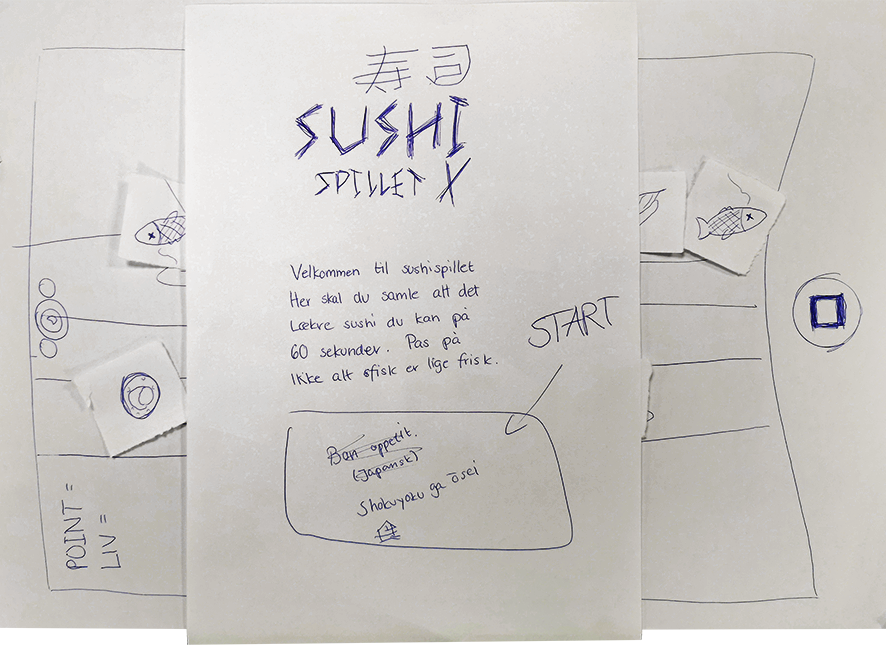 寿司
SUSHI
SPILLET X
Velkommen til sushispillet
Her skal du samle alt det
Lækre sushi du kan på
60 sekunder. Pas på
ikke alt fisk er lige frisk.
START
Bon appetit.
(Japansk)
Shokuyoku ga ōsei
POINT =
LIV =